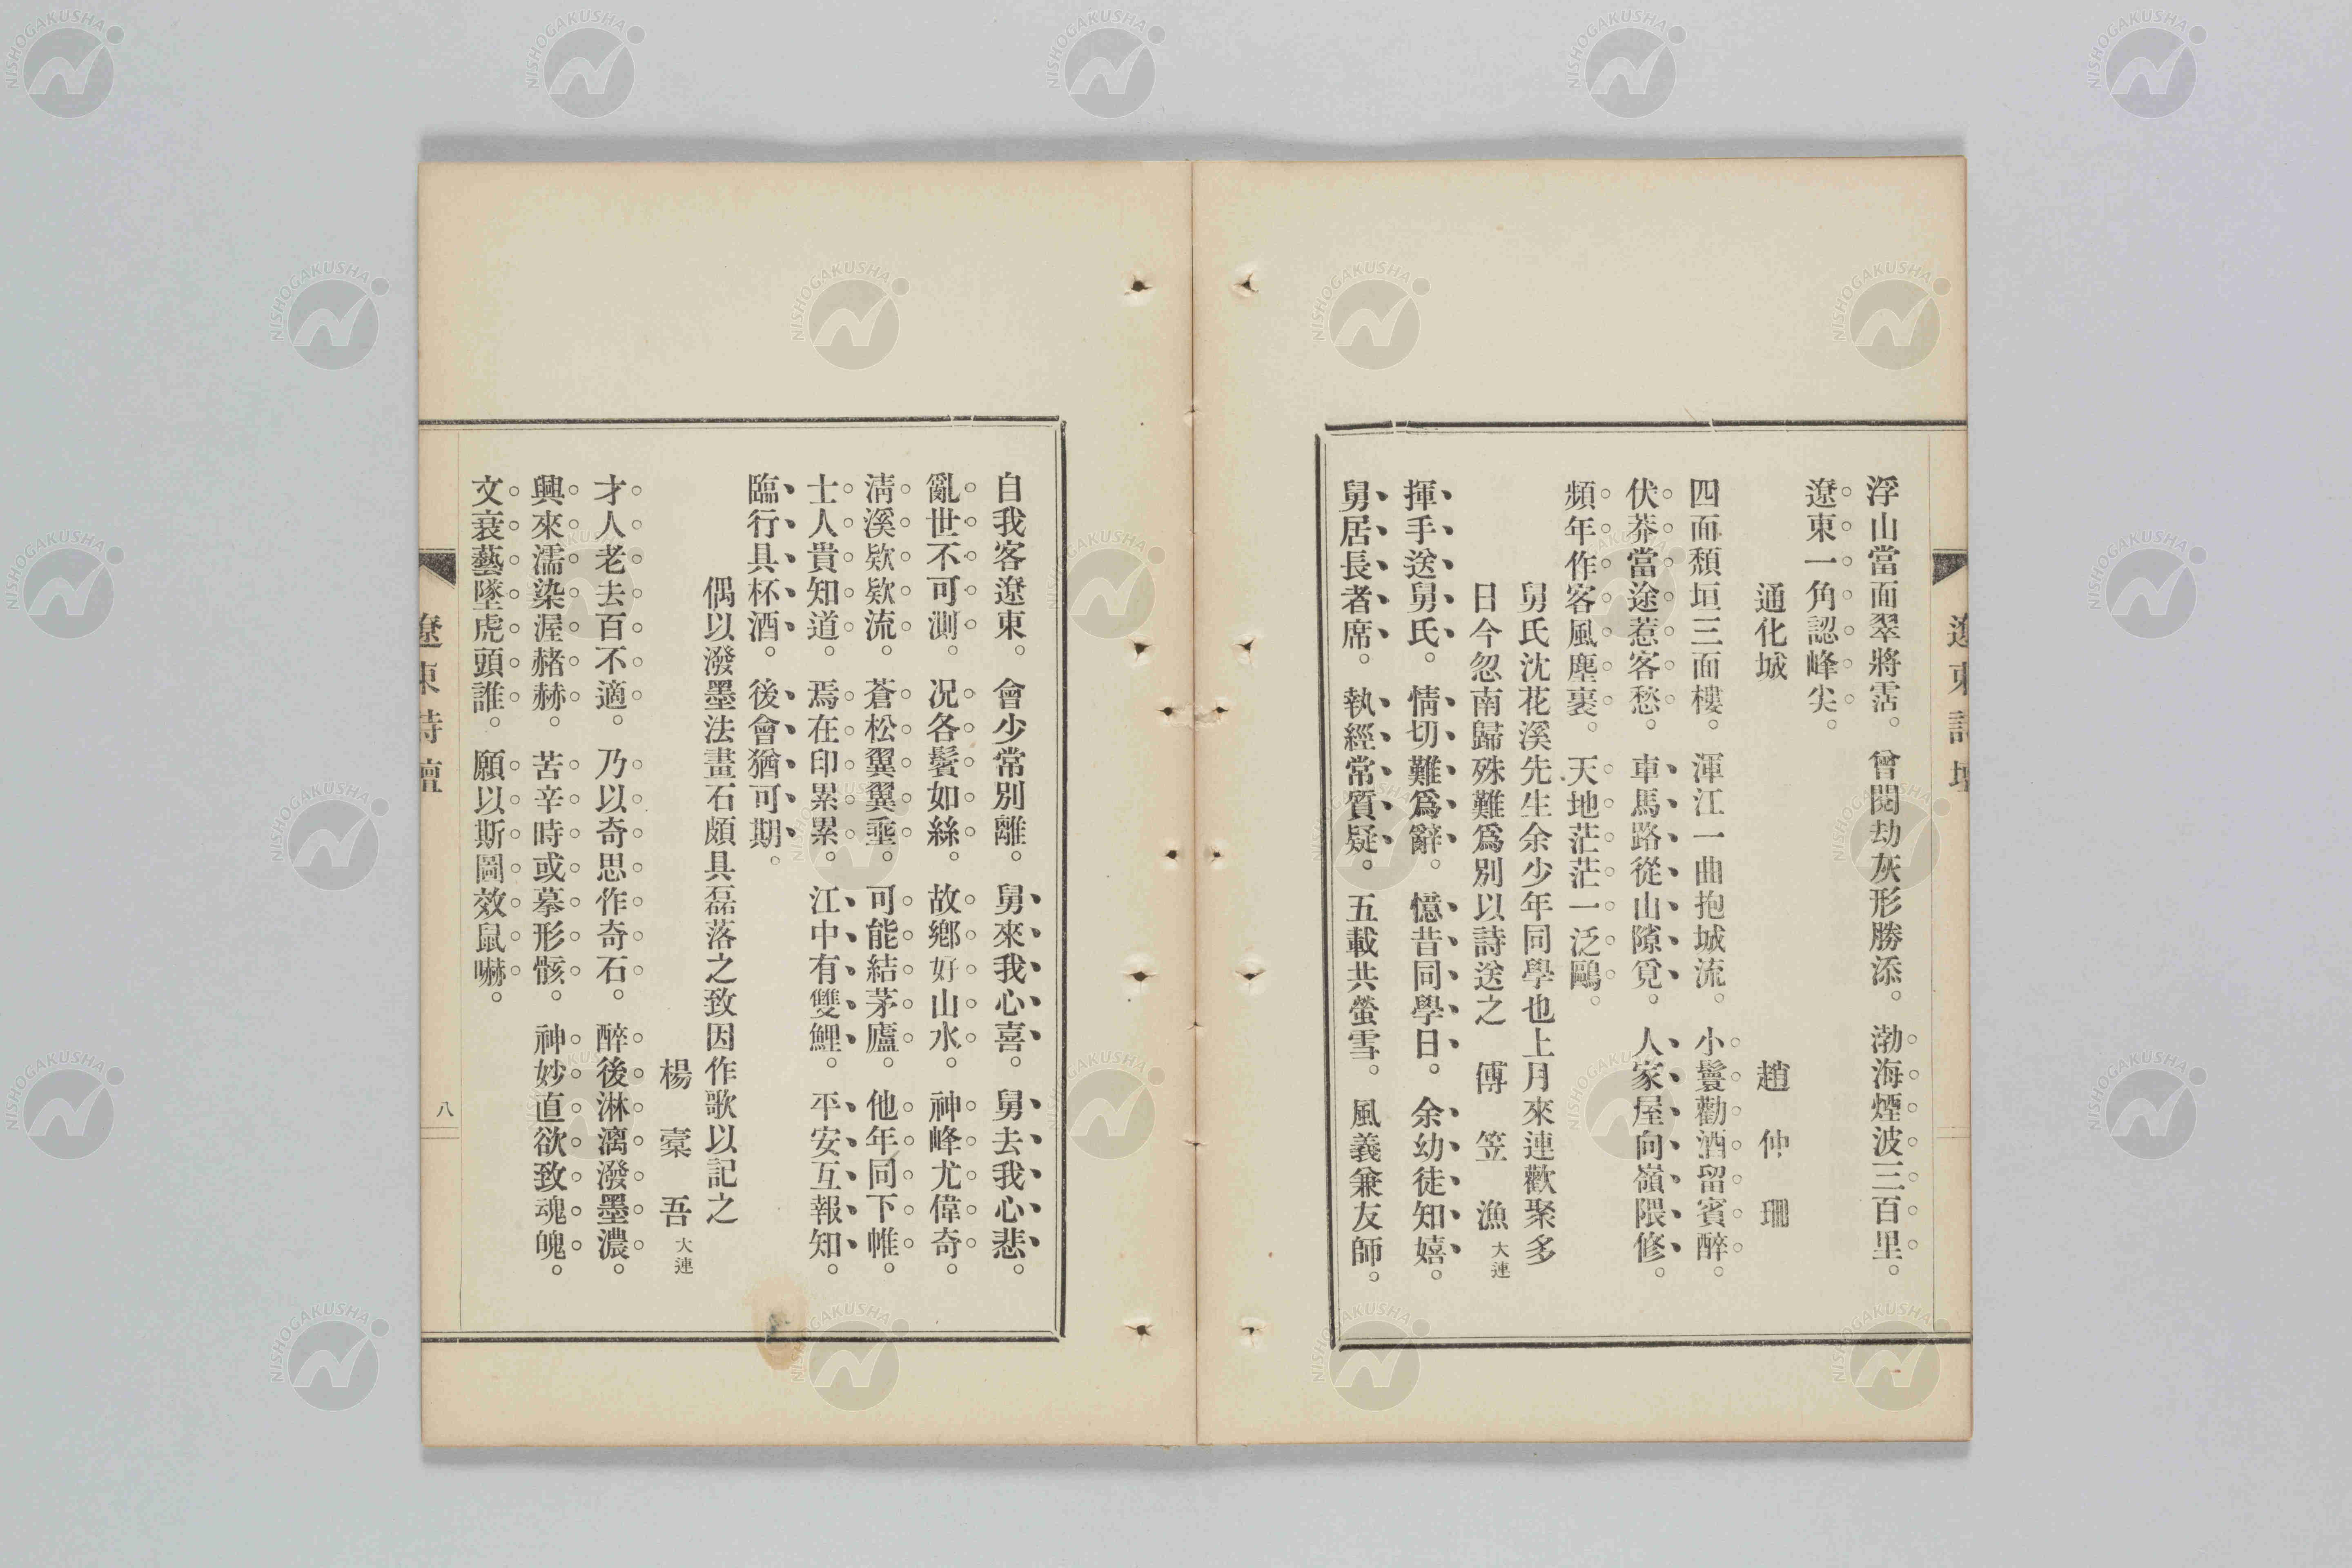 遼東詩壇
浮山當面翠將霑。曾閱劫灰形勝添。渤海煙波三百里。
遼東一角認峰尖。
通化城　趙仲珊
四面頹垣三面樓。渾江一曲抱城流。小鬟勸酒留賓醉。
伏莽當途惹客愁。車馬路從山隙覓。人家屋向嶺隈修。
頻年作客風塵裏。天地茫茫一泛鷗。
舅氏沈花溪先生余少年同學也上月來連歡聚多
日今忽南歸殊難爲別以詩送之　傅笠漁大連
揮手送舅氏。情切難爲辭。憶昔同學日。余幼徒知嬉。
舅居長者席。執經常質疑。五載共螢雪。風義兼友師。
自我客遼東。會少常別離。舅來我心喜。舅去我心悲。
亂世不可測。况各鬢如絲。故鄉好山水。神峰尤偉奇。
清溪欵欵流。蒼松翼翼垂。可能結茅廬。他年同下帷。
士人貴知道。焉在印累累。江中有雙鯉。平安互報知。
臨行具杯酒。後會猶可期。
偶以潑墨法畫石頗具磊落之致因作歌以記之
楊槖吾大連
才人老去百不適。乃以奇思作奇石。醉後淋漓潑墨濃。
興來濡染渥赭赫。苦辛時或摹形骸。神妙直欲致魂魄。
文衰藝墜虎頭誰。願以斯圖效鼠嚇。
遼東詩壇
八
NISHOGAKUSHA